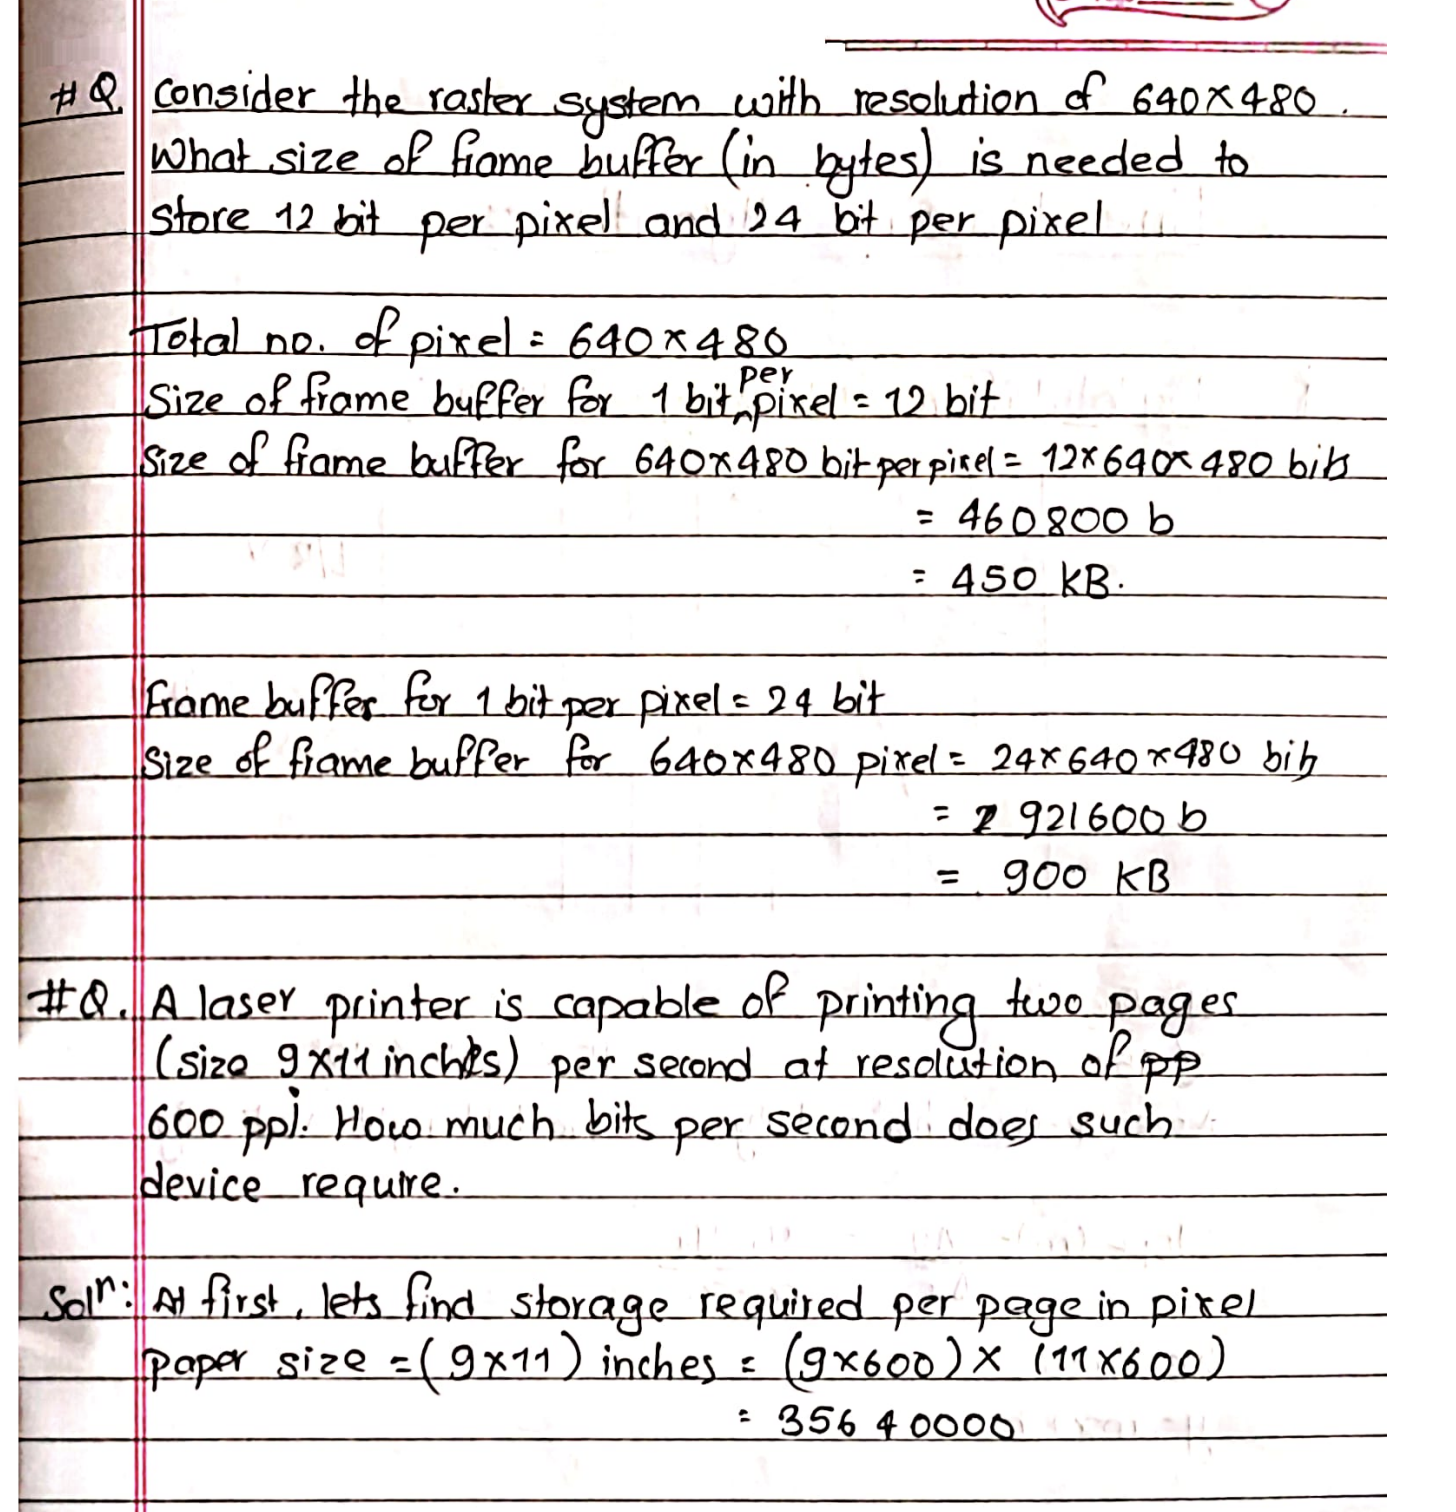 #Q. Consider the raster system with resolution of 640×480.
What size of frame buffer (in bytes) is needed to
store 12 bit per pixel and 24 bit per pixel
Total no. of pixel = 640×480
Size of frame buffer for 1 bit per pixel = 12 bit
Size of frame buffer for 640×480 bit per pixel = 12×640×480 bits
= 460800 b
= 450 KB.
Frame buffer for 1 bit per pixel = 24 bit
Size of frame buffer for 640×480 pixel = 24×640×480 bits
= 921600 b
= 900 KB
#Q. A laser printer is capable of printing two pages
(size 9×11 inches) per second at resolution of pp
600 ppi. How much bits per second does such
device require.
Solⁿ: At first, lets find storage required per page in pixel
paper size = (9×11) inches = (9×600) × (11×600)
= 35640000